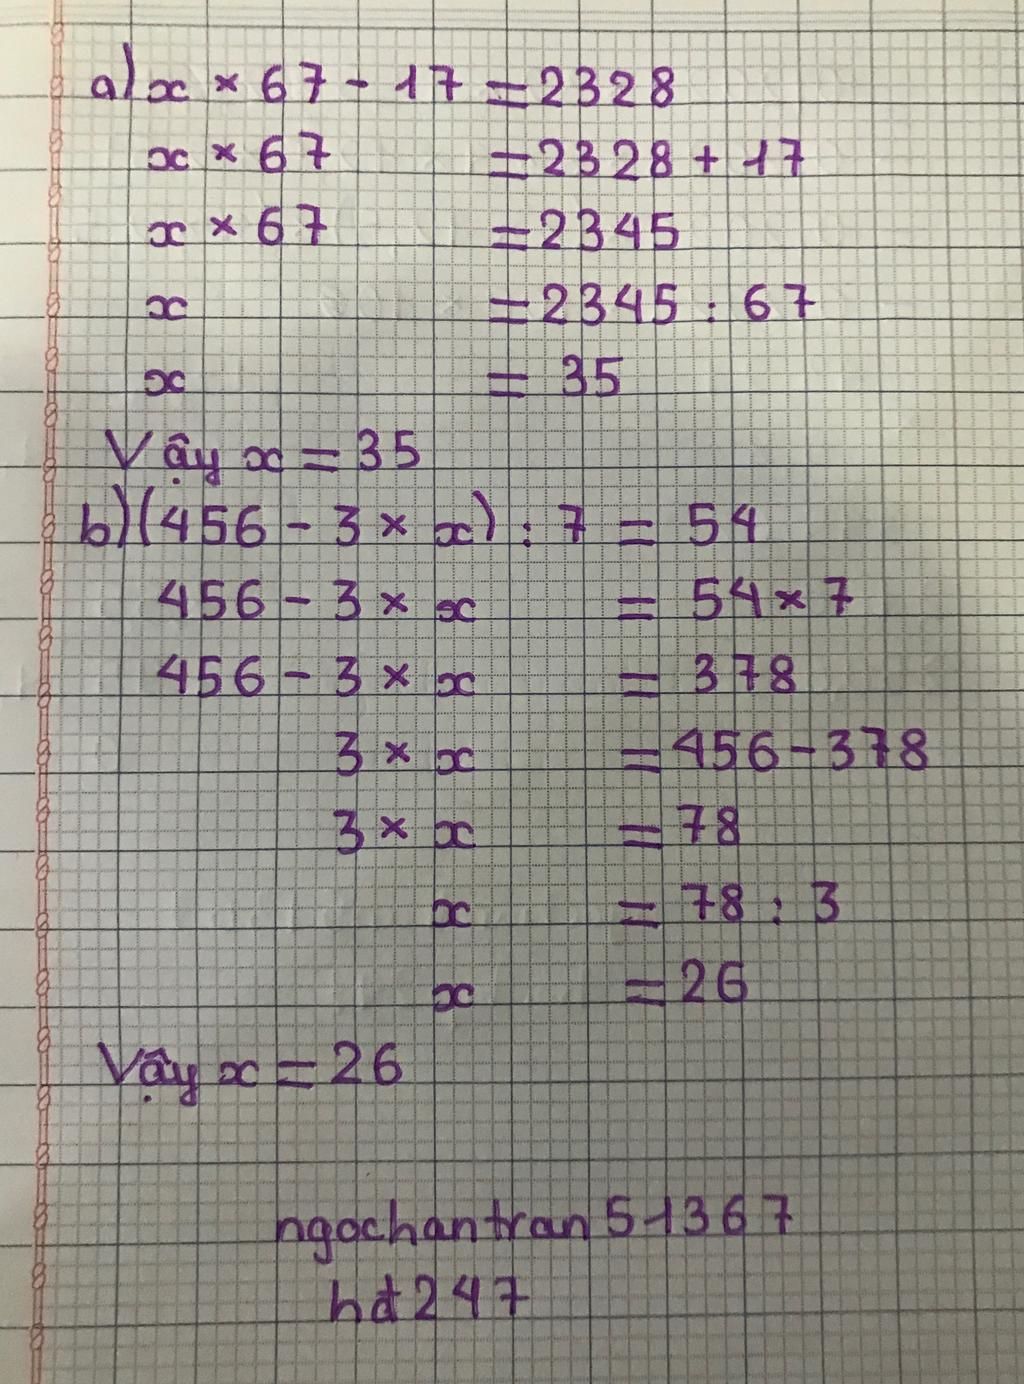 a) x × 67 - 17 = 2328
x × 67 = 2328 + 17
x × 67 = 2345
x = 2345 : 67
x = 35
Vậy x = 35
b) (456 - 3 × x) : 7 = 54
456 - 3 × x = 54 × 7
456 - 3 × x = 378
3 × x = 456 - 378
3 × x = 78
x = 78 : 3
x = 26
Vậy x = 26
ngochantran51367
hđ247